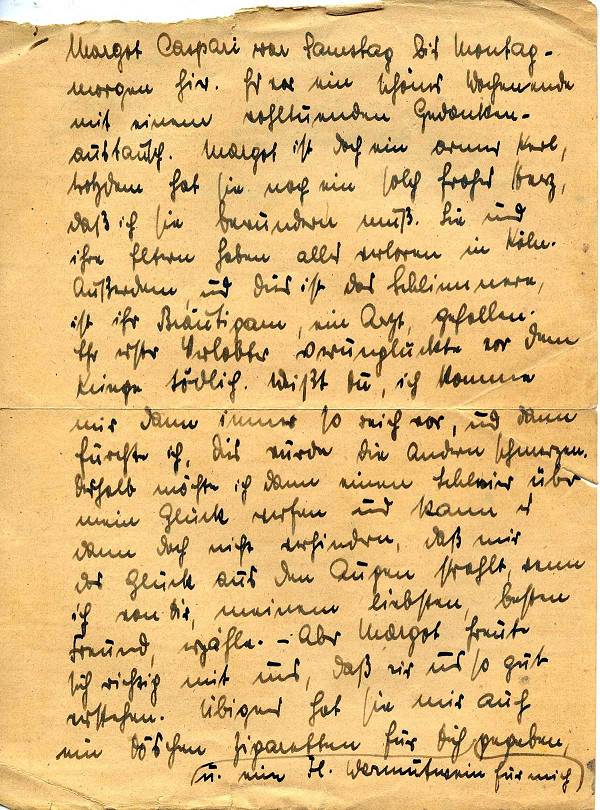 Margot Caspari war Samstag bis Montag-
morgen hier. Es war ein schönes Wochenende
mit einem wohltuenden Gedanken-
austausch. Margot ist doch ein armer Kerl,
trotzdem hat sie noch ein solch frohes Herz,
daß ich sie bewundern muß. Sie und
ihre Eltern haben alles verloren in Köln.
Außerdem, und dies ist das Schlimmere,
ist ihr Bräutigam, ein Arzt, gefallen.
Ihr erster Verlobter verunglückte vor dem
Kriege tödlich. Weißt Du, ich komme
mir dann immer so reich vor, und dann
fürchte ich, dies würde die Andern schmerzen.
Deshalb möchte ich dann einen Schleier über
mein Glück werfen und kann es
dann doch nicht verhindern, daß mir
das Glück aus den Augen strahlt, wenn
ich von Dir, meinem liebsten, besten
Freund, erzähle. – Aber Margot freute
sich richtig mit uns, daß wir uns so gut
verstehen. Übigens hat sie mir auch
ein Döschen Zigaretten für Dich gegeben,
(u. eine Fl. Wermutwein für mich)